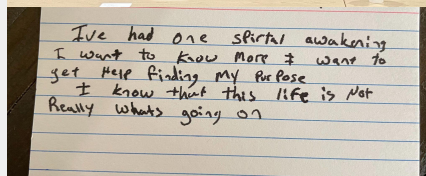 I've had one spirtal awakening
I want to know more & want to
get Help finding my Purpose
I know that this life is Not
Really whats going on